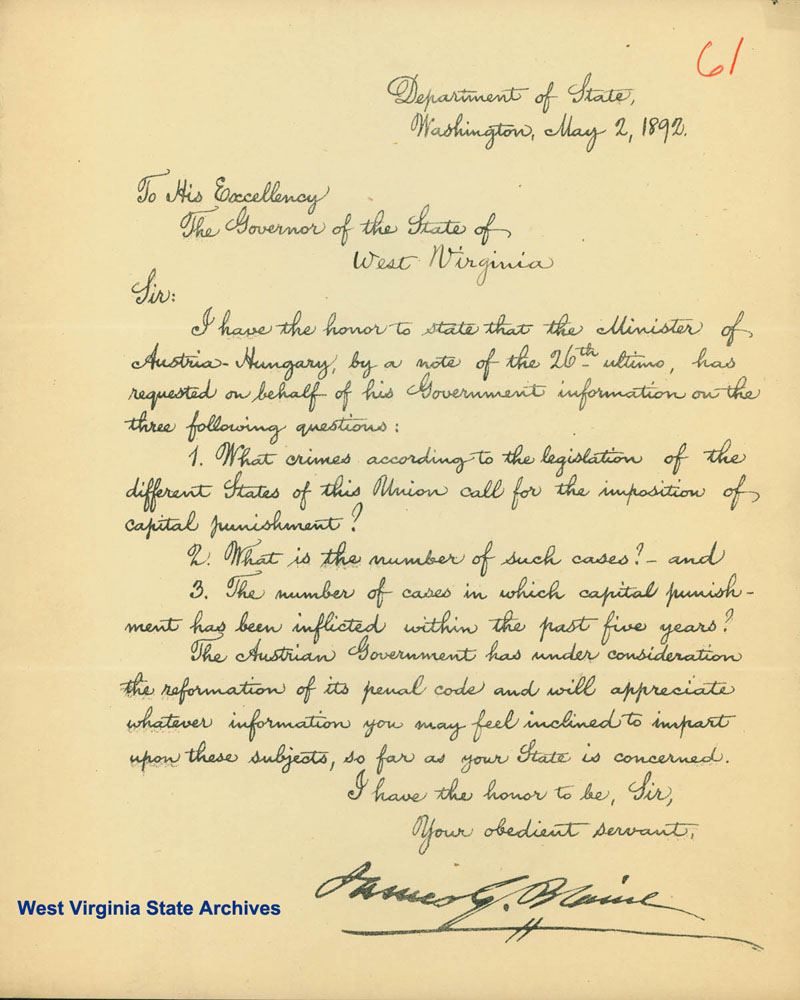 61
Department of State,
Washington, May 2, 1892.
To His Excellency
The Governor of the State of
West Virginia
Sir:
I have the honor to state that the Minister of
Austria-Hungary, by a note of the 26th ultimo, has
requested on behalf of his Government information on the
three following questions:
1. What crimes according to the legislation of the
different States of this Union call for the imposition of
capital punishment?
2. What is the number of such cases? - and
3. The number of cases in which capital punish-
ment has been inflicted within the past five years?
The Austrian Government has under consideration
the reformation of its penal code and will appreciate
whatever information you may feel inclined to impart
upon these subjects, so far as your State is concerned.
I have the honor to be, Sir,
Your obedient servant,
James G. Blaine
West Virginia State Archives